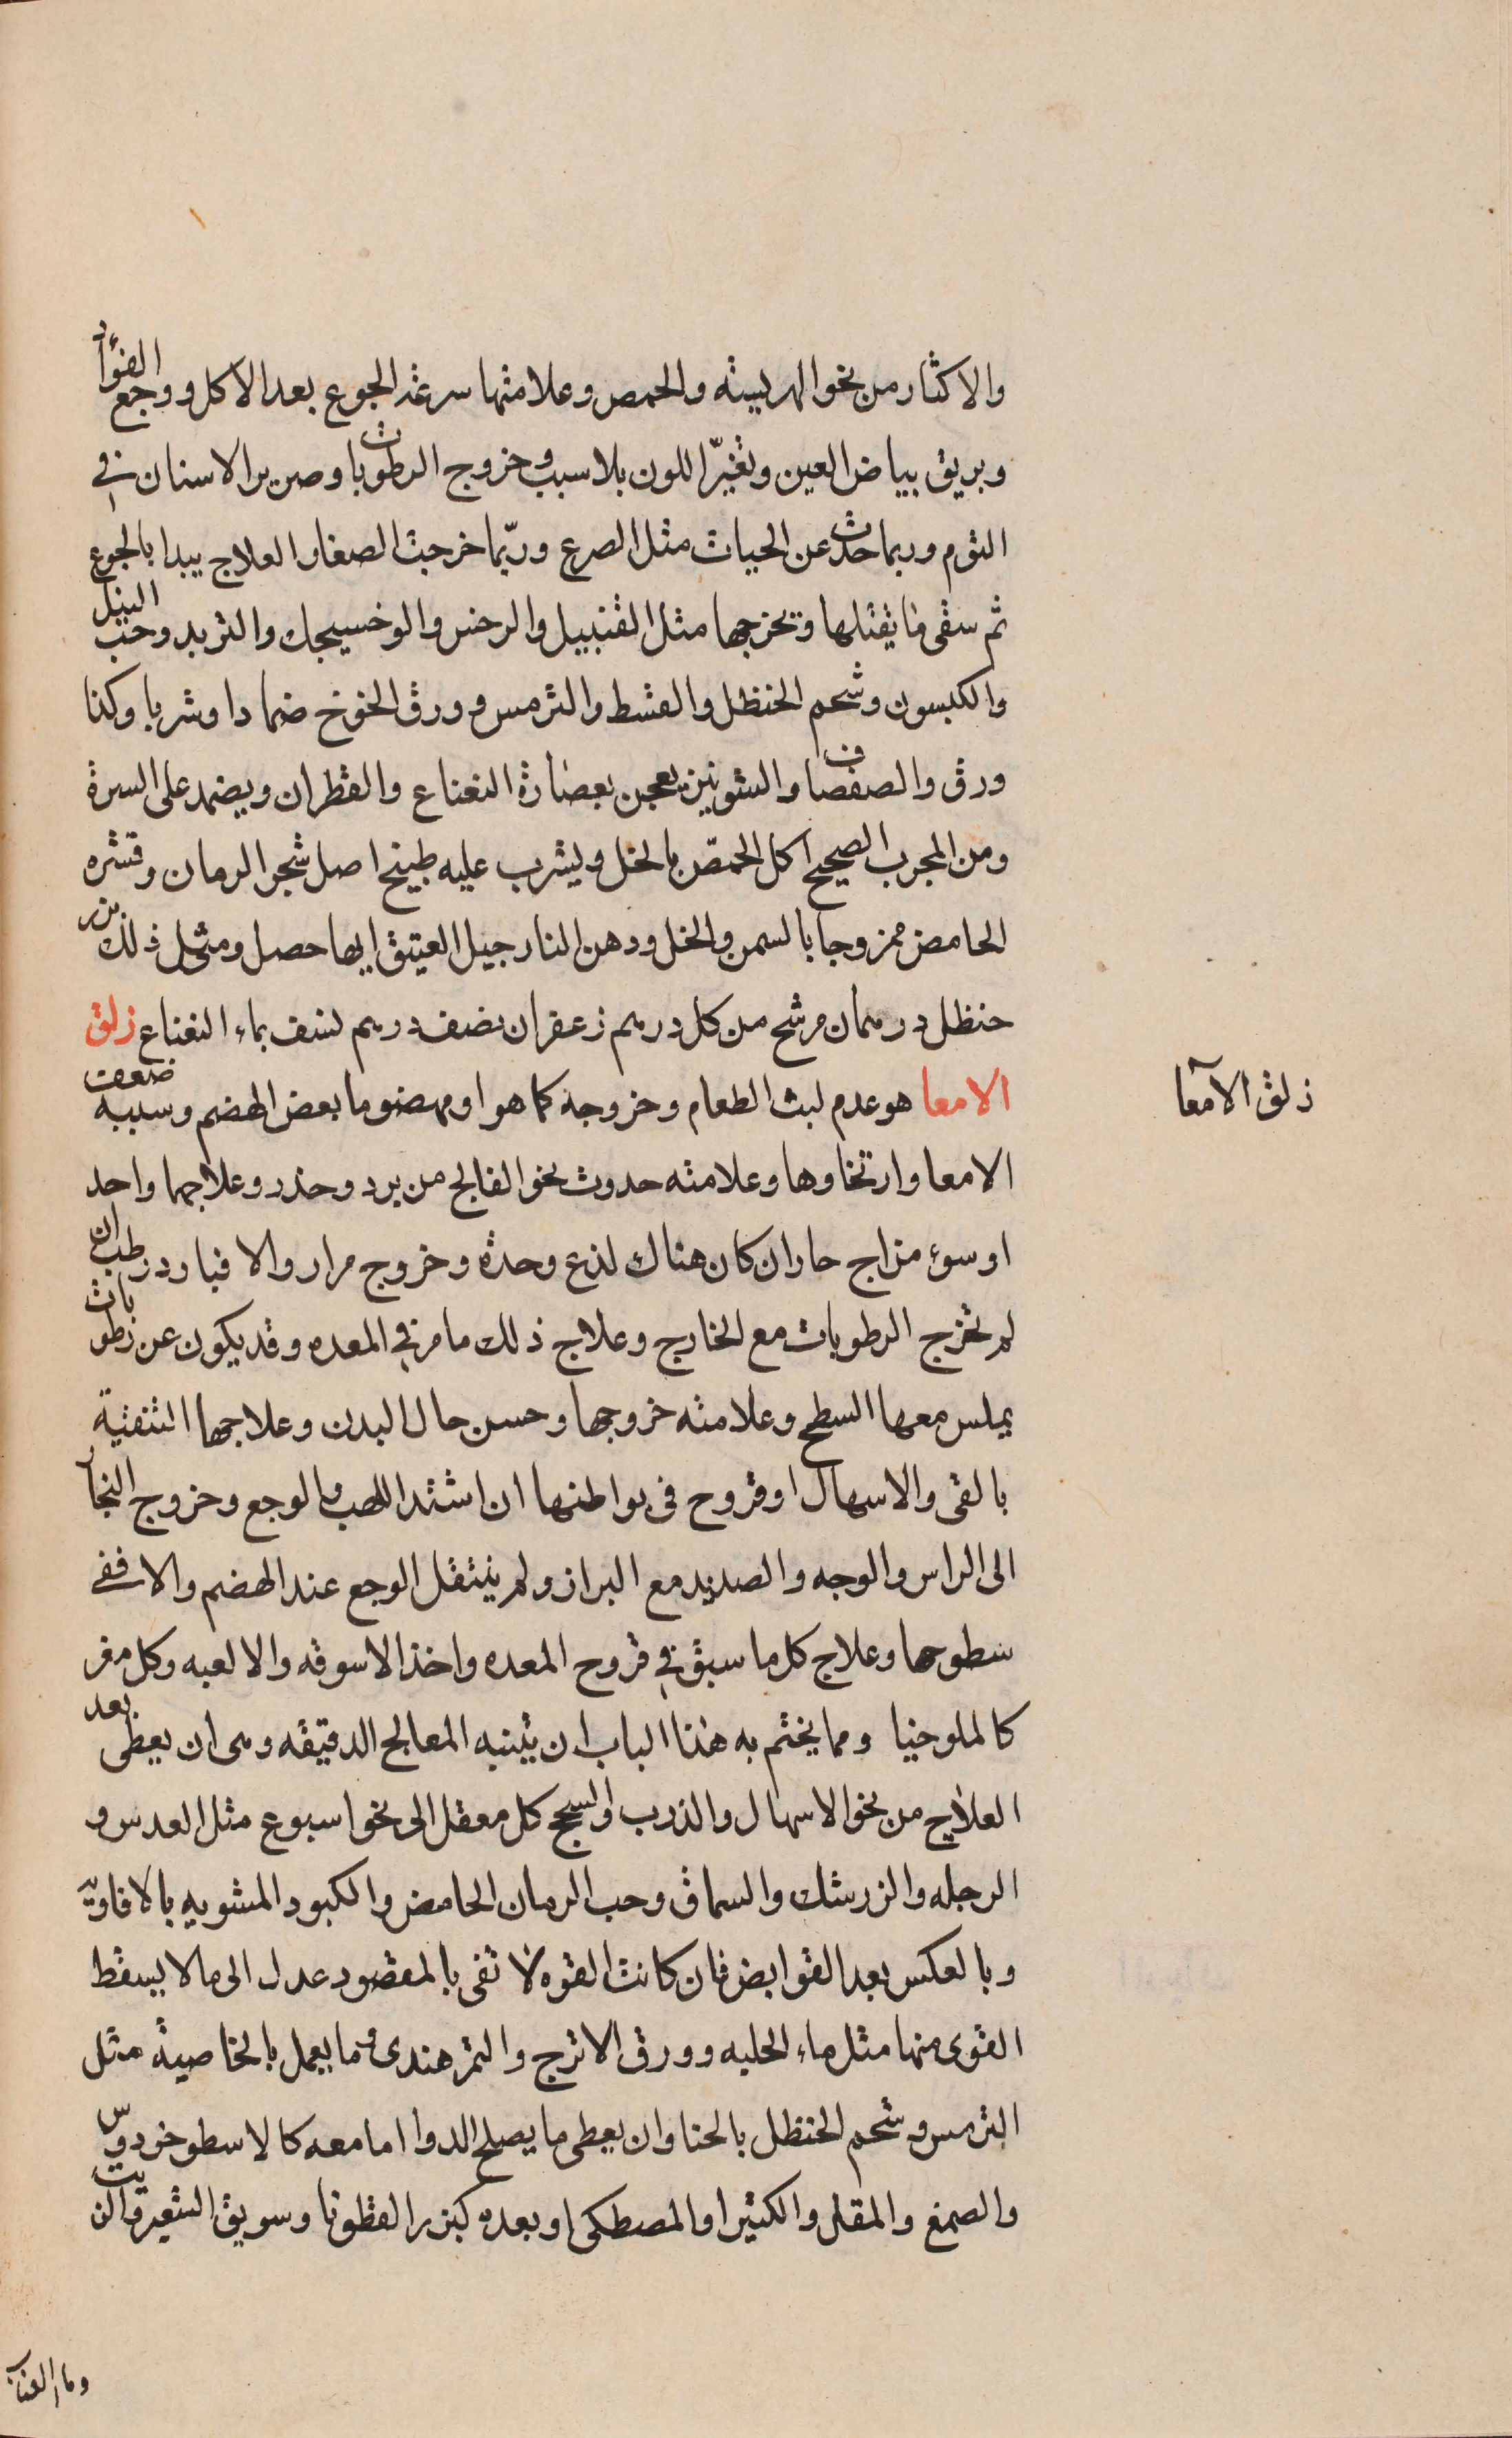 والاكثار من نحو الهريسة والحمص وعلامتها سرعة الجوع بعد الاكل ووجع الفؤاد
وبريق بياض العين وتغيّر اللون بلا سبب وخروج الرطوبات وصرير الاسنان في
النوم وربما حدث عن الحيات مثل الصرع وربّما خرجت الصغار العلاج يبدا بالجوع
ثم سقى ما يقتلها ويخرجها مثل القنبيل والرخس والوخسيجك والتربد وحب النيل
والكبسون وشحم الحنظل والقسط والترمس وورق الخوخ ضمادا وشربا وكذا
ورق والصفصاف والشونيز يعجن بعصارة النعناع والقطران ويضمد على السرة
ومن المجرب الصحيح اكل الحمّص بالخل ويشرب عليه طبيخ اصل شجر الرمان وقشره
الحامض ممزوجا بالسمن والخل ودهن النارجيل العتيق ايها حصل ومثل ذلك بزر
حنظل درهمان مرشح من كل درهم زعفران نصف درهم لسف بماء النعناع زلق
الامعا هو عدم لبث الطعام وخروجه كما هو او مهضوما بعض الهضم وسببه ضعف
زلق الآمعا
الامعا وارتخاوها وعلامته حدوث نحو الفالج من برد وخدر وعلاجهما واحد
او سوء مزاج حار ان كان هناك لذع وحدة وخروج مرار والا فبارد رطب ان
لم تخرج الرطوبات مع الخارج وعلاج ذلك ما مر في المعده وقد يكون عن رطوبات
يملس معها السطح وعلامته خروجها وحسن حال البدن وعلاجها التنقية
بالقى والاسهال او قروح فى بواطنها ان اشتد اللهب والوجع وخروج البخار
الى الراس والوجه والصديد مع البراز ولم ينتقل الوجع عند الهضم والا ففى
سطوحها وعلاج كل ما سبق في قروح المعده واخذ الاسوقه والالعبه وكل مغر
كالملوخيا ومما يختم به هذا الباب ان يتنبه المعالج الدقيقه وهى ان يعطى بعد
العلاج من نحو الاسهال والذرب والسحج كل معقل الى نحو اسبوع مثل العدس و
الرجله والزرشك والسماق وحب الرمان الحامض والكبود المشويه بالافاويه
وبالعكس بعد القوابض فان كانت القوه لا تفى بالمقصود عدل الى ما لا يسقط
القوى منها مثل ماء الحلبه وورق الاترج والتمر هندى وما يعمل بالخاصية مثل
الترمس وشحم الحنظل بالحنا وان يعطى ما يصلح الدوا اما معه كالاسطوخردوس
والصمغ والمقل والكثيرا والمصطكى او بعده كبزر القطونا وسويق الشعير والزيت
وما العناب